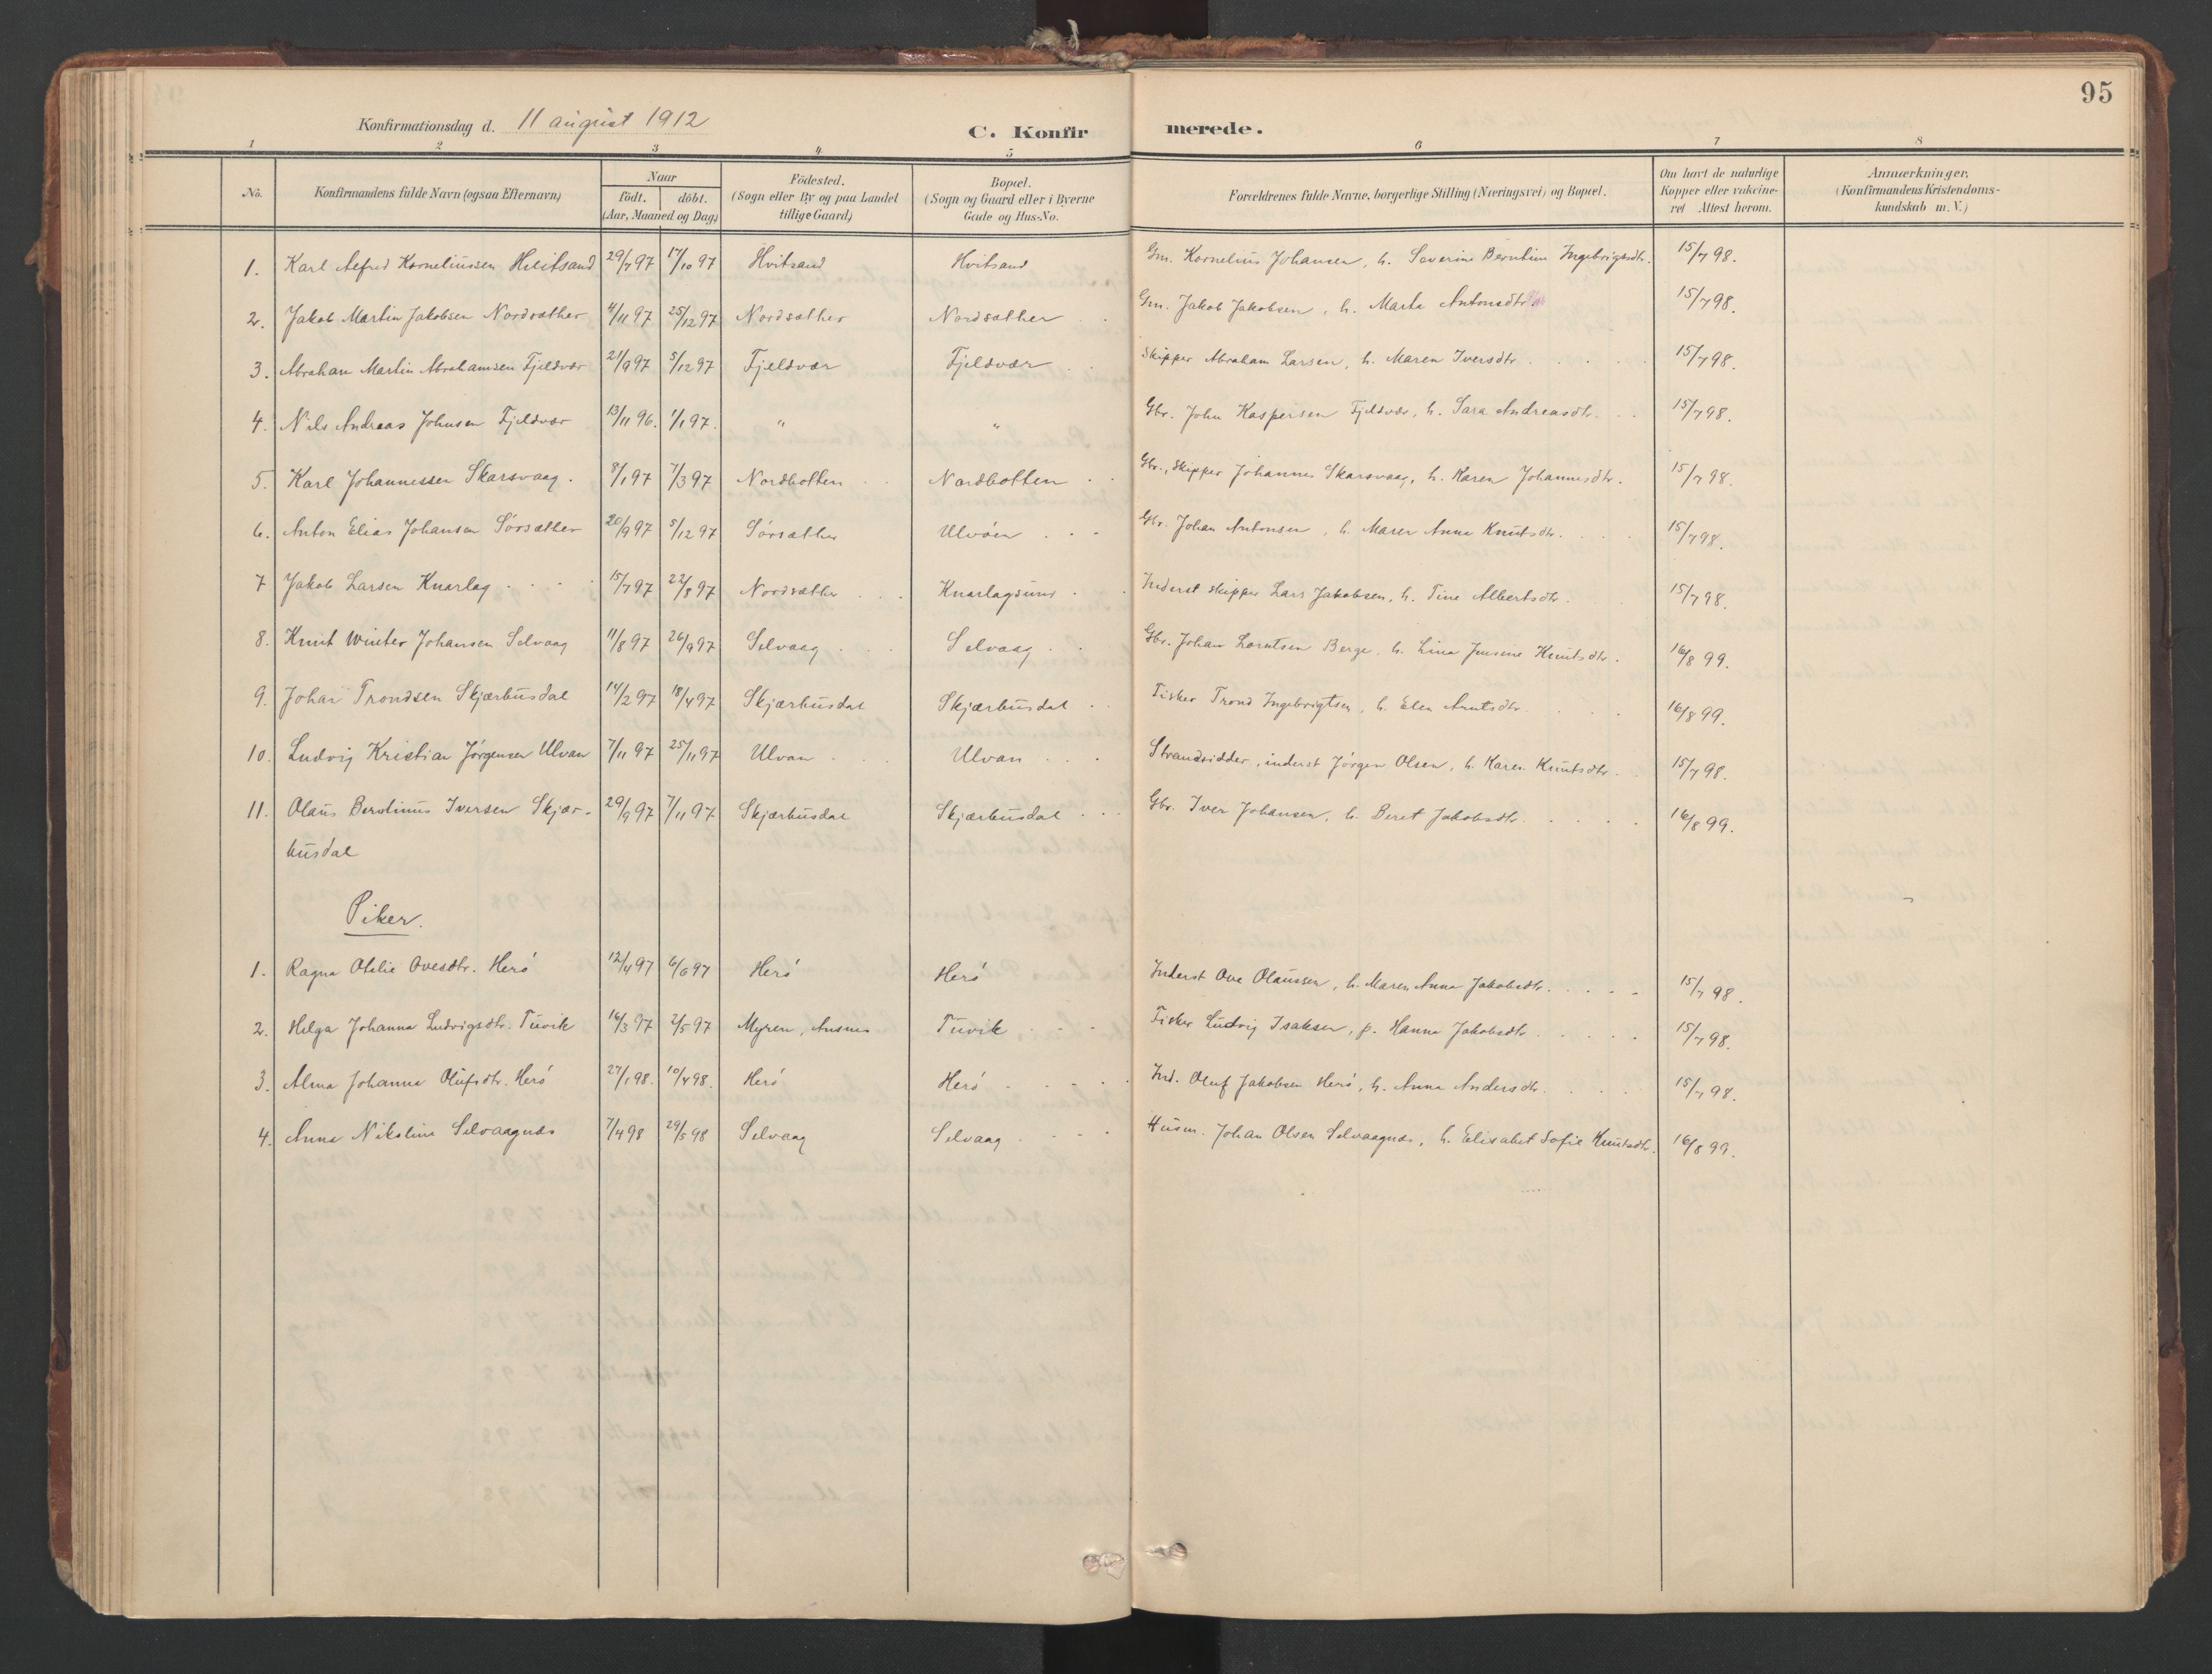 95
Konfirmationsdag d. 11 august 1912
C. Konfirmerede.
1 2 3 4 5 6 7 8
No. Konfirmandens fulde Navn (ogsaa Efternavn) Naar födt. döbt. (Aar, Maaned og Dag) Födested. (Sogn eller By og paa Landet tillige Gaard) Bopæl. (Sogn og Gaard eller i Byerne Gade og Hus-No. Forældrenes fulde Navne, borgerlige Stilling (Næringsvei) og Bopæl. Om havt de naturlige Kopper eller vakcineret Attest herom. Anmærkninger, (Konfirmandens Kristendomskundskab m. V.)
1. Karl Alfred Korneliussen Hvitsand 29/7 97 17/10 97 Hvitsand Hvitsand Gm. Kornelius Johansen, h. Severine Berntine Ingebrigtsdtr. 15/7 98.
2. Jakob Martin Jakobsen Nordsæther 4/11 97 25/12 97 Nordsæther Nordsæther Gm. Jakob Jakobsen, h. Marta Antonsdtr 15/7 98.
3. Abraham Martin Abrahamsen Fjeldvær 21/9 97 5/12 97 Fjeldvær Fjeldvær Skipper Abraham Larsen, h. Maren Iversdtr. 15/7 98.
4. Nils Andreas Johnsen Fjeldvær 13/11 96. 1/1 97. " " Gbr. John Kaspersen Fjeldvær, h. Sara Andreasdtr. 15/7 98.
5. Karl Johannessen Skarsvaag. 8/1 97 7/3 97 Nordbotten Nordbotten Gbr., skipper Johannes Skarsvaag, h. Karen Johannesdtr. 15/7 98.
6. Anton Elias Johansen Sörsæther 20/9 97 5/12 97 Sörsæther Ulvöen Gbr. Johan Antonsen, h. Maren Anna Knutsdtr. 15/7 98.
7 Jakob Larsen Knarlag 15/7 97 22/8 97 Nordsæther Knarlagsund Inderst skipper Lars Jakobsen, h. Tine Albertsdtr. 15/7 98.
8. Knut Winter Johansen Selvaag 11/8 97 26/9 97 Selvaag Selvaag Gbr. Johan Lorntsen Berge, h. Lina Jensine Knutsdtr. 16/8 99.
9. Johan Trondsen Skjærbusdal 14/2 97 18/4 97 Skjærbusdal Skjærbusdal Fisker Trond Ingebrigtsen, h. Elen Arntsdtr. 16/8 99.
10. Ludvig Kristian Jörgensen Ulvan 7/11 97 25/11 97 Ulvan Ulvan Strandsidder, inderst Jörgen Olsen, h. Karen Knutsdtr. 15/7 98.
11. Olaus Berdinus Iversen Skjær- 29/9 97 7/11 97 Skjærbusdal Skjærbusdal Gbr. Iver Johansen, h. Beret Jakobsdtr. 16/8 99.
busdal
Piker.
1. Ragna Otelie Ovesdtr. Herö 12/4 97 6/6 97 Herö Herö Inderst Ove Olaussen, h. Maren Anna Jakobsdtr. 15/7 98.
2. Helga Johanna Ludvigsdtr. Tuvik 16/3 97 2/5 97 Myren, Ansnes Tuvik Fisker Ludvig Isaksen, p. Hanna Jakobsdtr 15/7 98.
3. Alma Johanna Olufsdtr. Herö 27/1 98. 10/4 98. Herö Herö Ind. Oluf Jakobsen Herö, h. Anna Andersdtr. 15/7 98.
4. Anna Nikoline Selvaagnæs 7/4 98 29/5 98 Selvaag Selvaag Husm. Johan Olsen Selvaagnæs, h. Elisabet Sofie Knutsdtr. 16/8 99.